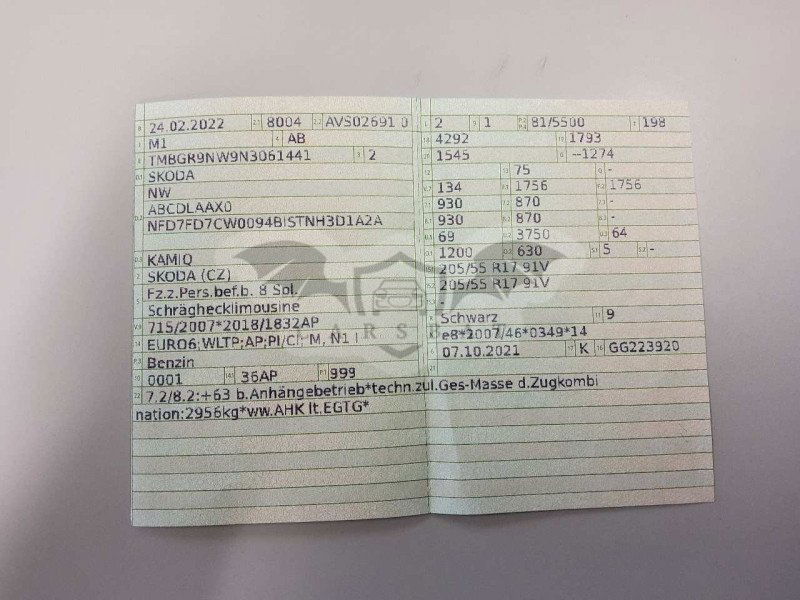 24.02.2022 8004 AVS02691 0
M1 AB
TMBGR9NW9N3061441 2
SKODA
NW
ABCDLAAX0
NFD7FD7CW0094BISTNH3D1A2A
KAMIQ
SKODA (CZ)
Fz.z.Pers.bef.b. 8 Spl.
Schräghecklimousine
715/2007*2018/1832AP
EURO6;WLTP;AP;PI/CI; M, N1 I
Benzin
0001 36AP 999
7.2/8.2:+63 b.Anhängebetrieb*techn.zul.Ges-Masse d.Zugkombi
nation:2956kg*ww.AHK lt.EGTG*
2 1 81/5500 198
4292 1793
1545 --1274
75 -
134 1756 1756
930 870 -
930 870 -
69 3750 64
1200 630 5 -
205/55 R17 91V
205/55 R17 91V
-
Schwarz 9
e8*2007/46*0349*14
07.10.2021 K GG223920
CARSBAT